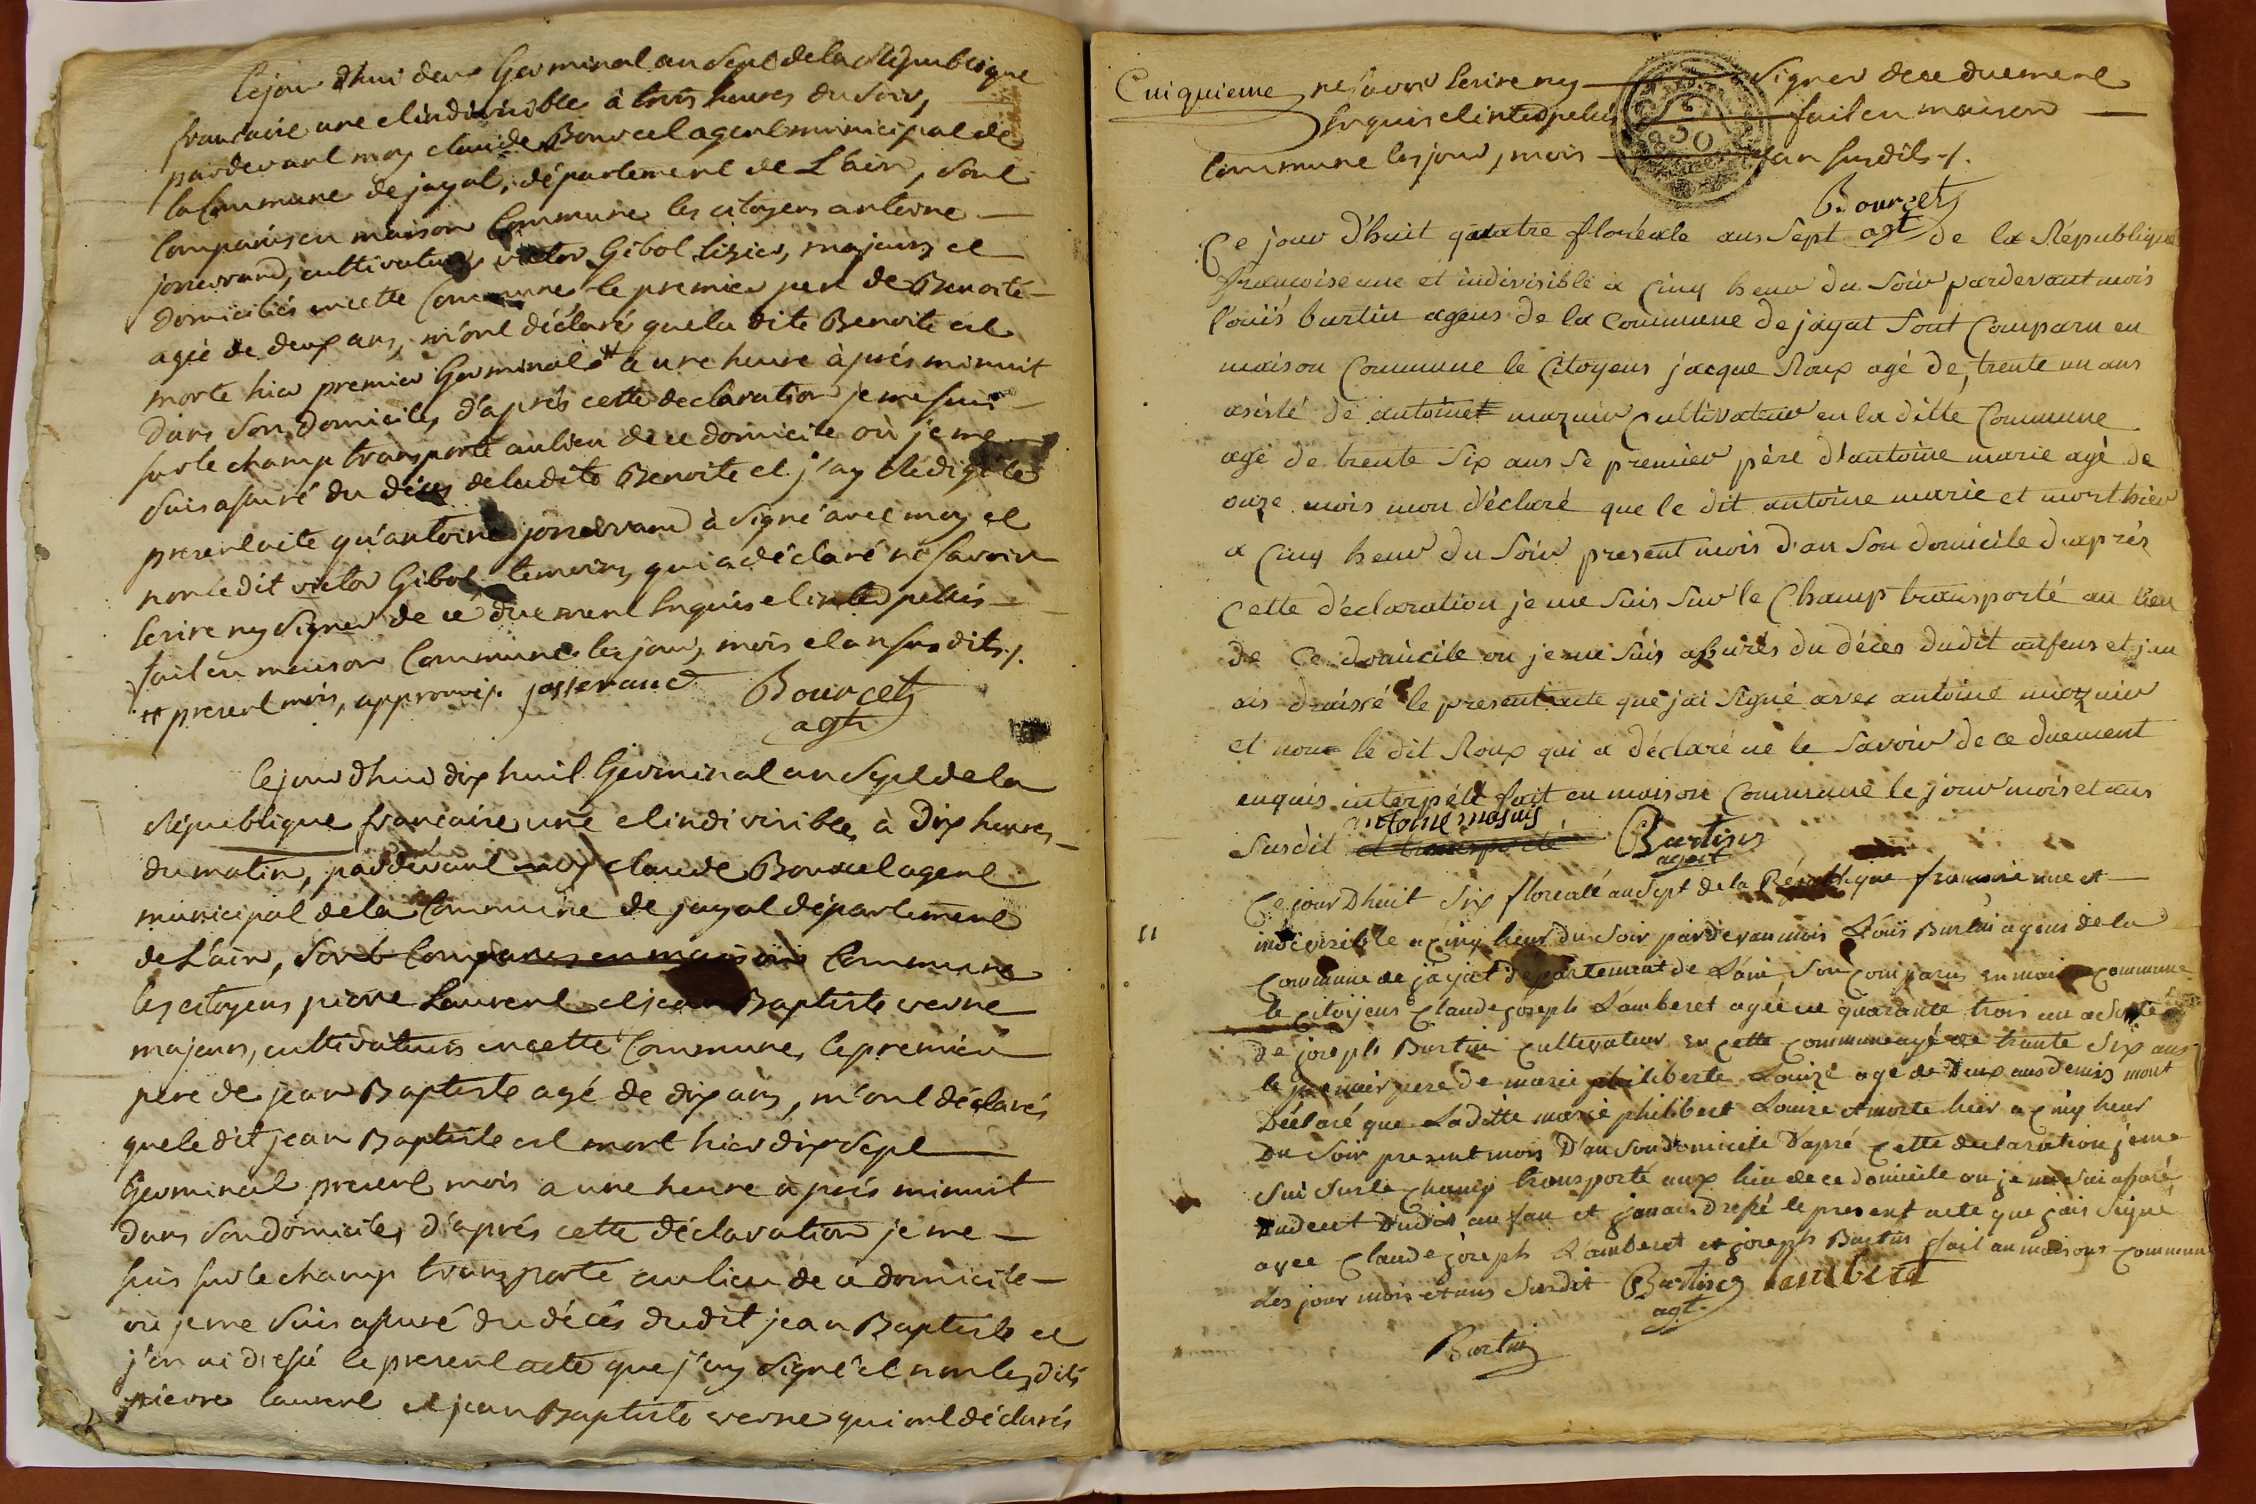 Cejour d'hui deux Germinal an Sept dela République
francaise une et indivisible à trois heures du soir,
pardevant moy claude Bourcet agent municipal de
la Commune de jayat, département de L'ain, sont
Comparus en maison Commune les citoyens antoine
josserand, cultivateur victor Gibol tixier, majeurs et
domiciliés encette Commune le premier pere de Benoite
agée de deux ans, m'ont déclaré quela dite Benoite est
morte hier premier Germinal # a une heure après minuit
dans son domicile, d'après cette declaration je me suis
sur le champ transporté au lieu de ce domicile où je me
suis assuré du décès deladite Benoite et j'ay Redigé le
present acte qu'antoine josserand à signé avec moy et
non ledit victor Gibol temoin, qui a déclaré ne savoir
Ecrire ny signer de ce duement Enquis et interpellés
fait en maison Commune les jour, mois et an susdits ./.
# present mois, approuvé ./. josserand Bourcet
agt
Cejourdhui dix huit Germinal an Sept de la
République francaise une et indivisible, à Dix heures
du matin, pardevant moy claude Bourcel agent
municipal dela Commune de jayat département
de L'ain, sont Comparus en maison Commune
les citoyens pierre Laurent et jean Baptiste verne
majeurs, cultivateurs en cette Commune, le premier
pere de jean Baptiste agé de dix ans, m'ont déclarés
que le dit jean Baptiste est mort hier dix Sept
Germinal present mois a une heure après minuit
dans son domicile, d'après cette déclaration je me
suis sur le champ transporté au lieu de ce domicile
où je me suis assuré du décès dudit jean Baptiste et
j'en ai dressé le present acte que j'ay signé et non lesdits
pierre laurent et jean Baptiste verne qui ont déclarés
Cinquieme ne savoir Ecrire ny signer dece duement
Enquis et interpellés fait en maison
Commune les jour, mois et an susdits ./.
Bourcet
agt
Ce jour d'huit quatre floréale ans Sept de la République
françoise une et indivisible a Cinq heur du Soir pardevant mois
louis burtin agens de la Commune de jayat Sont Comparu en
maison Commune le Citoyens jacque Roux agé de, trente un ans
asisté de antoine mazuir Cultivateur en la ditte Commune
agé de trente Six ans le premier père d'antoine marie agé de
onze mois mon déclaré que le dit antoine marie et mort hier
a Cinq heur du Soir present mois d'an Son domicile d'après
Cette déclaration je me Suis Sur le Champ transporté au lieu
de Ce domicile ou je me Suis assurés du décès dudit anfens et j'an
ais draissé le present acte que jai Signé avec antoine mazuir
et non le dit Roux qui a déclaré ne le Savoir de ce duement
enquis interpélé fait en maison Commune le jour mois et ans
Susdit et transporté antoine masuis Burtin
agent
Ce jour Dhuit Six floreale an Sept de la République francoise une et
indivisible a Cinq heur du Soir pardevan mois Louis Burtin agens de la
Commune de jayat département de L'ain Son Comparus en maison Commune
le Citoyens Claude joseph Lamberet agée de quarante trois an assisté
de joseph Burtin Cultivateur En Cette Commune agé de trante Six ans
le premier pere de marie philiberte Louize agé de Deux ans demis mont
Déclaré que Laditte marie philibert Louise et morte hier a Cinq heur
Du Soir present mois D'an Son domicile D'apré Cette declaration je me
Sui Sur le Champ transporté aux lieu de ce domicile ou je me Sui assuré
Dudit an fan et janais dressé le present acte que jais Signé
avec Claude joseph Lamberet et joseph Burtin fait an maisons Commun
les jour mois et ans Susdit Burtin lamberet
agt.
Burtin